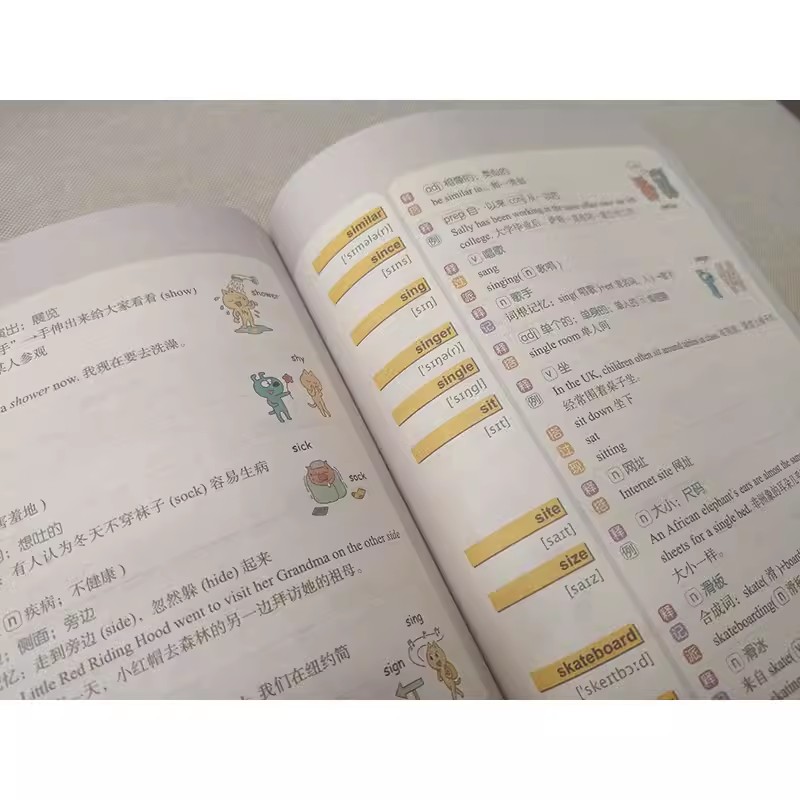 演出；展览
手”→手伸出来给大家看看 (show)
某人参观
a shower now. 我现在要去洗澡。
shower
shy
sick
sock
害羞地）
想吐的
有人认为冬天不穿袜子 (sock) 容易生病
n 疾病；不健康）
侧面；旁边
忆：走到旁边 (side)，忽然躲 (hide) 起来
Little Red Riding Hood went to visit her Grandma on the other side
一天，小红帽去森林的另一边拜访她的祖母。
我们在纽约简
sing
sign
similar
['sɪmələ(r)]
since
[sɪns]
sing
[sɪŋ]
singer
['sɪŋə(r)]
single
['sɪŋgl]
sit
[sɪt]
site
[saɪt]
size
[saɪz]
skateboard
['skeɪtbɔːd]
释 adj 相像的；类似的
搭 be similar
释 prep 自…以来
例 Sally has been working in the same office since she left
college. 大学毕业后，
释 v 唱歌
过 sang
派 singing(n 歌唱）
释 n 歌手
记 词根记忆：sing( 唱歌 )
释 adj 单个的；单身的；
搭 single room 单人间
释 v 坐
例 In the UK, children often sit around tables in class.
经常围着桌子坐。
搭 sit down 坐下
过 sat
现 sitting
释 n 网址
搭 Internet site 网址
释 n 大小；尺码
例 An African elephant's ears are almost the same
sheets for a single bed.
大小一样。
释 n 滑板
记 合成词：skate( 滑 )+board
派 skateboarding(n
释 n 滑冰
来自 skate(v
skating